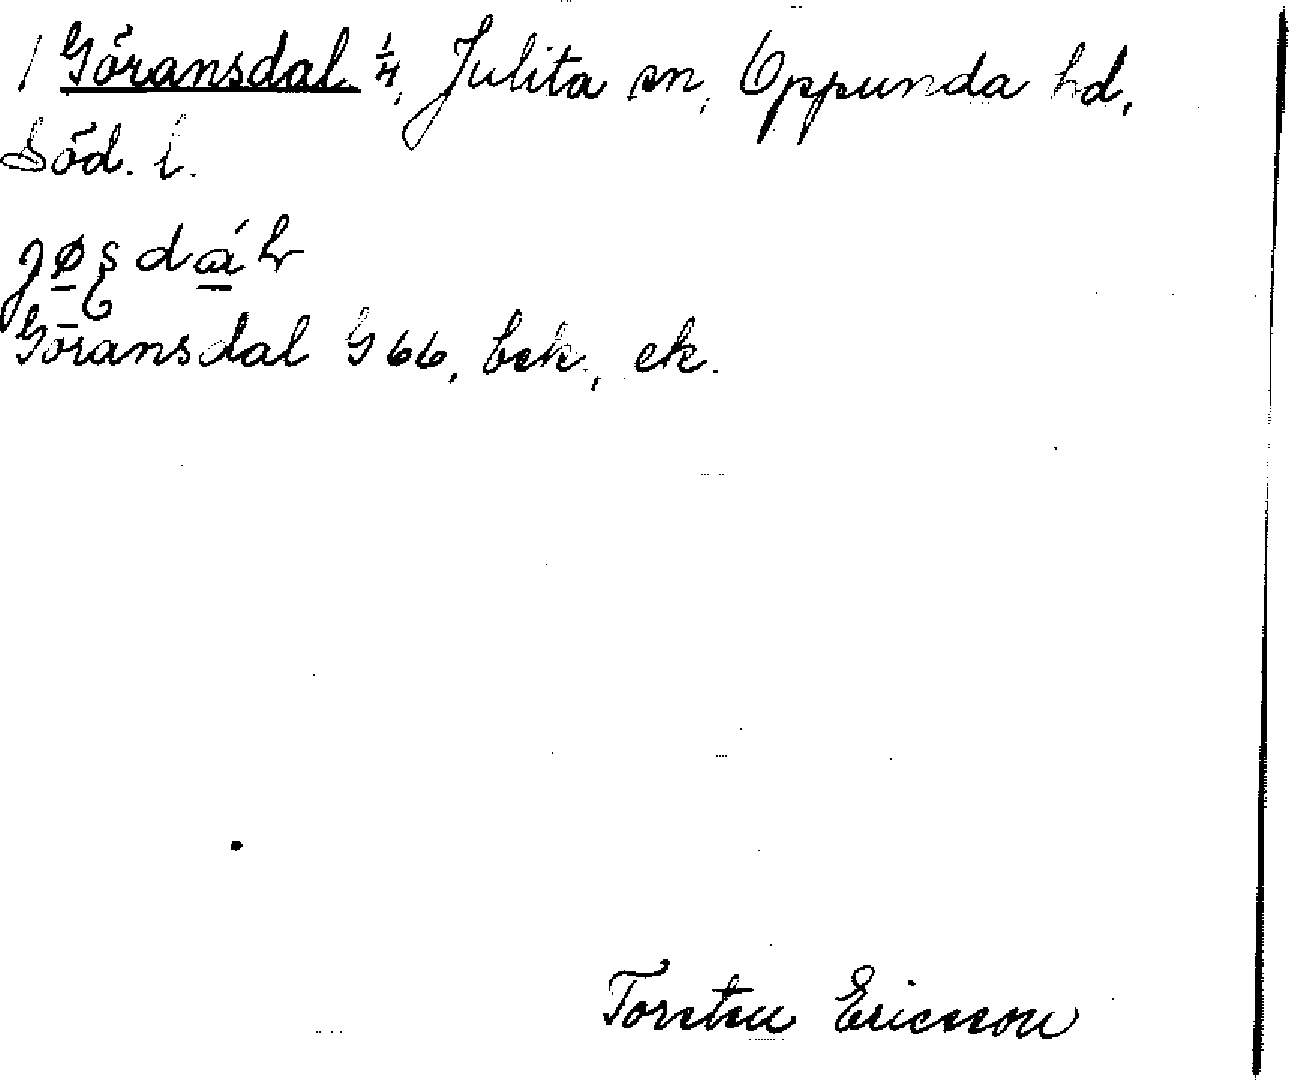 / Göransdal ¼, Julita sn, Oppunda hd,
Söd. l.
Göransdal G 66, bek, ek.
Torsten Ericsson